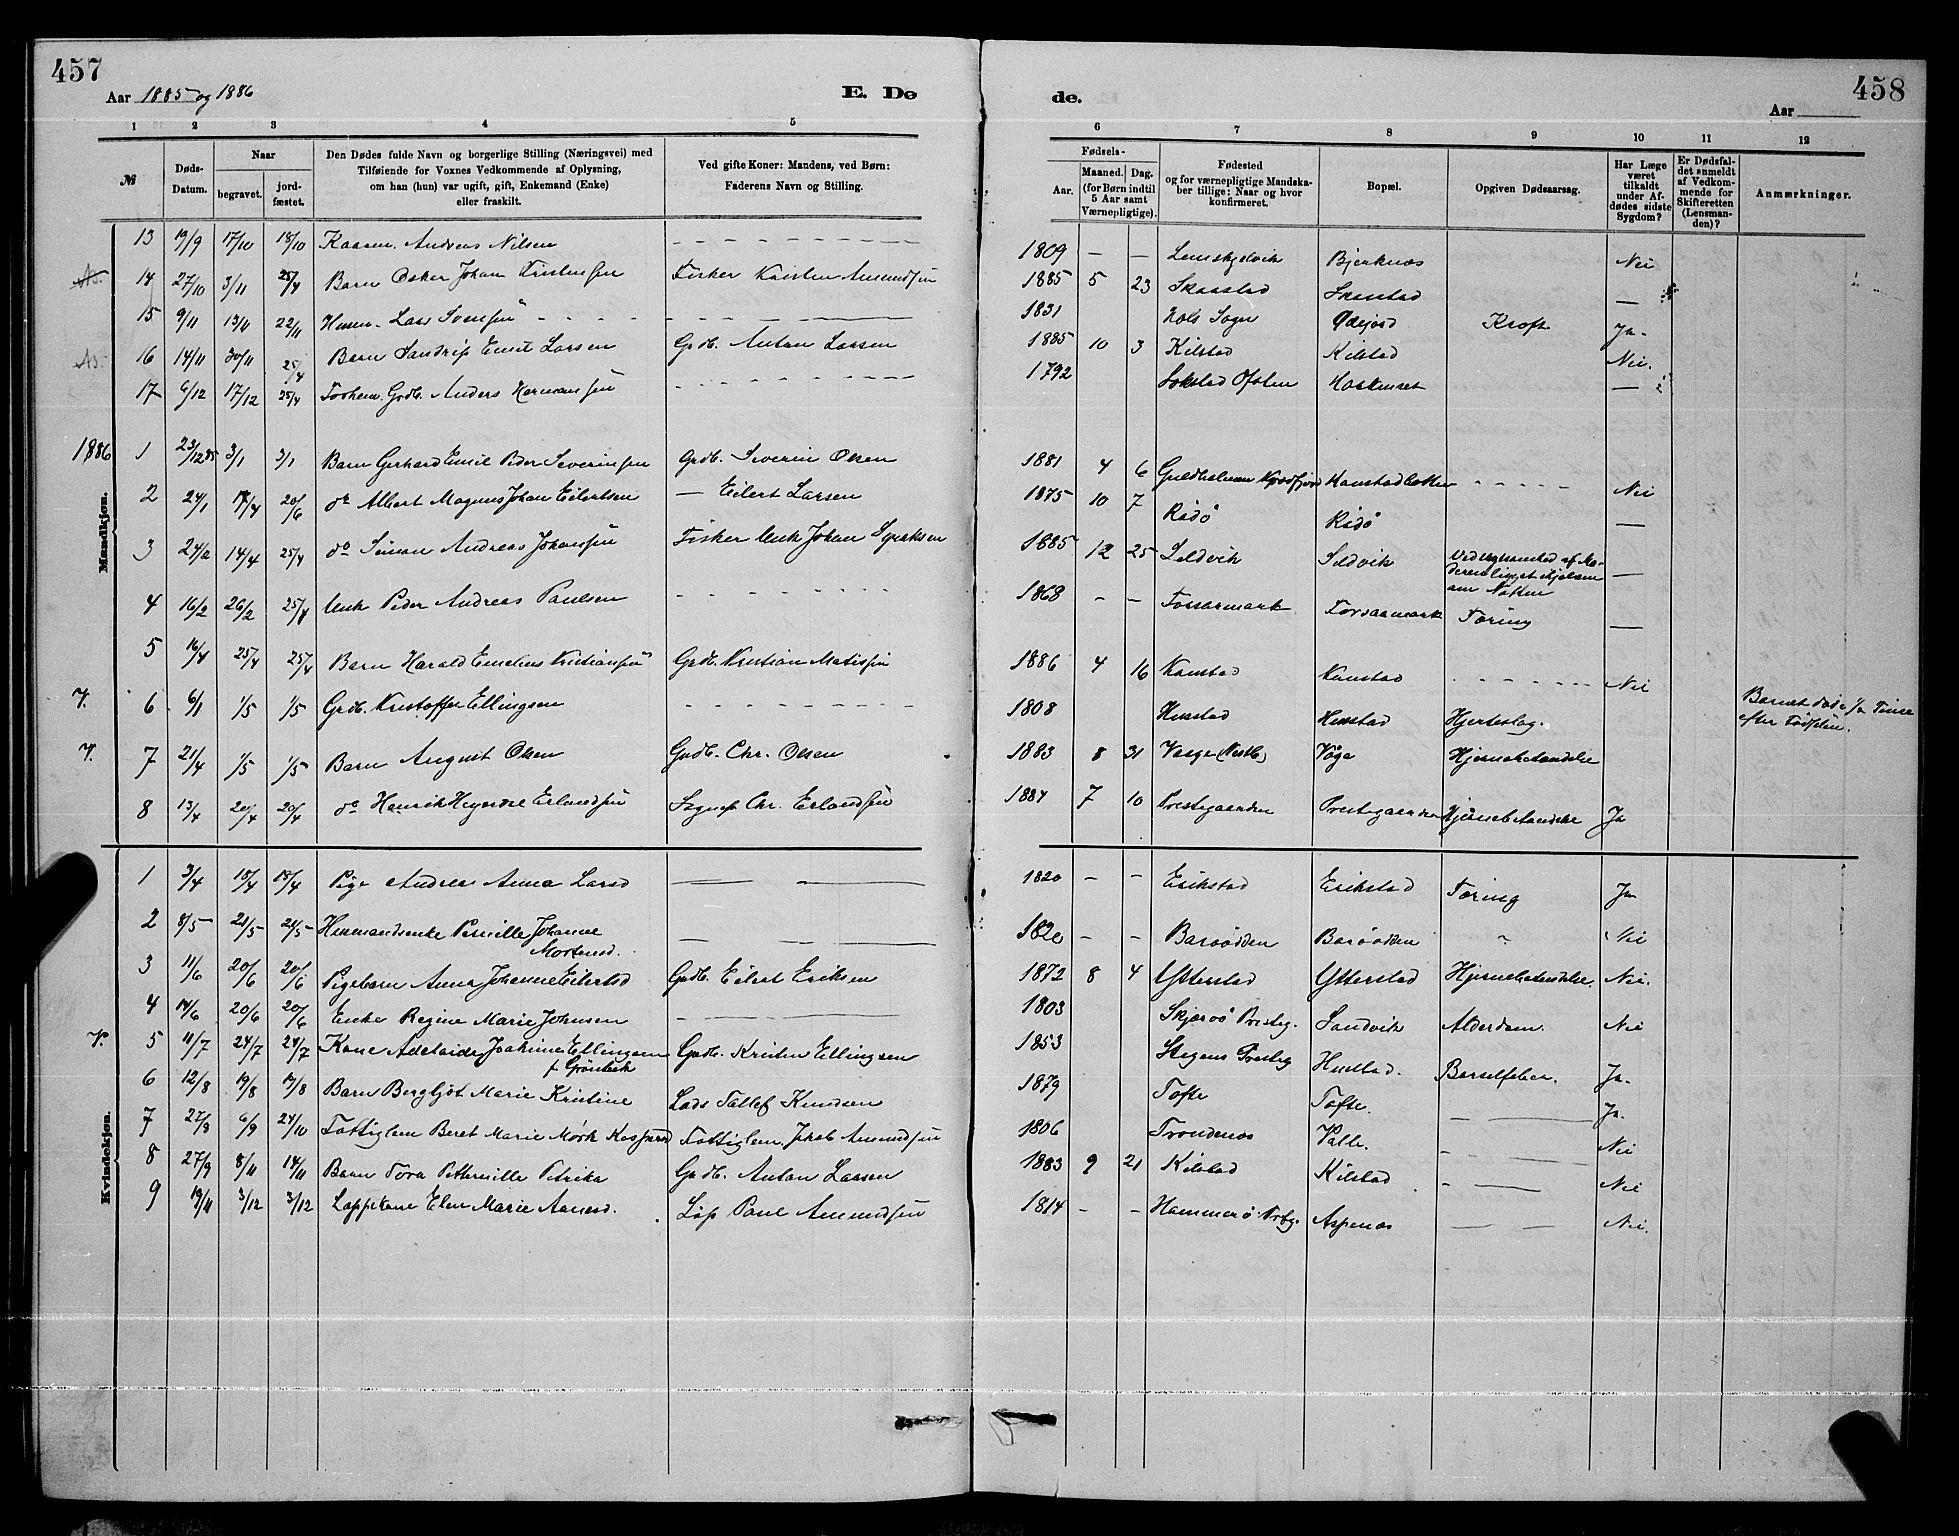 457
Aar 1885 og 1886
E. Dø
1 2 3 4 5
№
Døds-
Datum.
Naar
begravet.
jord-
fæstet.
Den Dødes fulde Navn og borgerlige Stilling (Næringsvei) med
Tilføiende for Voxnes Vedkommende af Oplysning,
om han (hun) var ugift, gift, Enkemand (Enke)
eller fraskilt.
Ved gifte Koner: Mandens, ved Børn:
Faderens Navn og Stilling.
13 19/9 17/10 18/10 Kaarm. Andreas Nilsen
14 27/10 3/11 25/4 Barn Oskar Johan Kristensen Fisker Kristen Amundsen
15 9/11 13/11 22/11 Husm. Lars Svensen
16 14/11 30/11 25/4 Barn Sandrip Emil Larsen Grdb. Anton Larsen
17 6/12 17/12 25/4 Forhen. Grdb. Anders Hermansen
1886
Mandkjøn.
1 23/12 85 3/1 3/1 Barn Gerhard Emil Peder Severinsen Grdb. Severin Olsen
2 24/1 17/4 20/6 do Albert Magnus Johan Eilertsen — Eilert Larsen
3 24/2 14/4 25/4 do Simon Andreas Johansen Fisker Unk Johan Syraksen
4 16/2 26/2 25/4 Unk Peder Andreas Paulsen
5 16/4 25/4 25/4 Barn Harald Emelius Kristiansen Grdb. Kristian Matissen
V. 6 6/1 1/5 1/5 Grdb. Kristoffer Ellingsen
V. 7 21/4 1/5 1/5 Barn August Olsen Grdb. Chr. Olsen
8 13/4 20/4 20/4 do Henrik Erlandsen Sognep. Chr. Erlandsen
Kvindekjøn.
1 3/4 18/4 18/4 Pige Andrea Anna Larsd
2 8/5 21/5 21/5 Husmandsenke Pernille Johanne
Mortensd.
3 11/6 20/6 20/6 Pigebarn Anna Johanne Eilertsd Grdb. Eilert Eriksen
4 14/6 20/6 20/6 Enke Regine Marie Johnsen
V. 5 11/7 24/7 24/7 Kone Adelaide Joakime Ellingsen Grdb. Kristen Ellingsen
f. Grönbech
6 12/8 19/8 19/8 Barn Bergljót Marie Kristine Lods Tallef Knudsen
7 27/8 6/9 24/10 Fattiglem Beret Marie Mørk Kaspersd Fattiglem Jakob Amundsen
8 27/9 8/11 14/11 Barn Tora Petternille Petrika Grdb. Anton Larsen
9 19/11 3/12 3/12 Lappekone Elen Marie Aanesd. Lap Paul Amundsen
458
de.
Aar
6 7 8 9 10 11 12
Fødsels-
Aar.
Maaned. Dag.
(for Børn indtil
5 Aar samt
Værnepligtige).
Fødested
og for værnepligtige Mandska-
ber tillige: Naar og hvor
konfirmeret.
Bopæl.
Opgiven Dødsaarsag.
Har Læge
været
tilkaldt
under Af-
dødes sidste
Sygdom?
Er Dødsfal-
det anmeldt
af Vedkom-
mende for
Skifteretten
(Lensman-
den)?
Anmærkninger.
1809 — — Bjerknes Nei
1885 5 23 Skaastad Skaastad —
1831 Hols Sogn Ødejord Kræft Ja.
1885 10 3 Kilstad Kilstad Nei.
1792 Sokstad Ofoten —
1881 4 6 Guldholmen Kanstadbotten Nei
1875 10 7 Rådø Rådø —
1885 12 25 Sildvik Sildvik Ved Uagtsomhed af Mo-
deren ligget ihjel
om Natten —
1868 - - Forsaamark Forsaamark Tæring —
1886 4 16 Kanstad Kanstad Nei
Barnet døde 1/2 Time
efter Fødselen.
1808 Husstad Husstad Hjerteslag.
1883 8 31 Vaage (Vestb.) Våge Hjernebetændelse
1884 7 10 Prestegaarden Prestegaarden Hjernebetændelse Ja
1820 - - Erikstad Erikstad Tæring Ja
1820 - - Barøodden Barøodden Nei
1872 8 4 Ytterstad Ytterstad Hjernebetændelse. Nei.
1803 Skjærvö Presteg. Sandvik Alderdom. Nei
1853 Stegens Presteg Husstad. Barselfeber. Ja.
1879 Tofte Tofte. Ja.
1806 Trondenes Valle. Nei
1883 9 21 Kilstad Kilstad Nei
1814 - - Hammerö Prstg. Aspenes Nei.